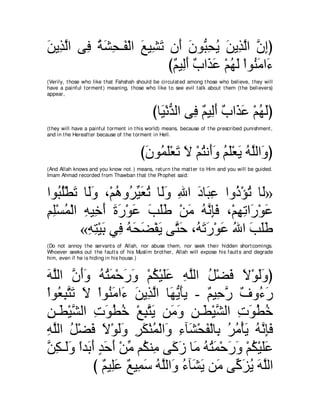 إِنَّ الَّذِينَ يُحِبُّونَ أَن تَشِيعَ الْفَـحِشَةُ فِى الَّذِينَ
ءَامَنُواْ لَهُمْ عَذَابٌ أَلِيمٌ)
(Verily, those who like that Fahshah should be circulated among those who believe, they will
have a painful torment) meaning, those who like to see evil talk about them (the believers)
appear,
(لَهُمْ عَذَابٌ أَلِيمٌ فِى الدُّنْيَا)
(they will have a painful torment in this world) means, because of the prescribed punishment,
and in the Hereafter because of the torment in Hell.
(وَاللَّهُ يَعْلَمُ وَأَنتُمْ لاَ تَعْلَمُونَ)
(And Allah knows and you know not.) means, return the matter to Him and you will be guided.
Imam Ahmad recorded from Thawban that the Prophet said:
«لَا تُؤْذُوا عِبَادَ اللهِ وَلَا تُعَيِّرُوهُمْ، وَلَا تَطْلُبُوا
عَوْرَاتِهِمْ، فَإِنَّهُ مَنْ طَلَبَ عَوْرَةَ أَخِيهِ الْمُسْلِمِ
طَلَبَ اللهُ عَوْرَتَهُ، حَتَّى يَفْضَحَهُ فِي بَيْتِه»
(Do not annoy the servants of Allah, nor abuse them, nor seek their hidden shortcomings.
Whoever seeks out the faults of his Muslim brother, Allah will expose his faults and degrade
him, even if he is hiding in his house.)
(وَلَوْلاَ فَضْلُ اللَّهِ عَلَيْكُمْ وَرَحْمَتُهُ وَأَنَّ اللَّهَ
رَءُوفٌ رَّحِيمٌ - يأَيُّهَا الَّذِينَ ءَامَنُواْ لاَ تَتَّبِعُواْ
خُطُوَتِ الشَّيْطَـنِ وَمَن يَتَّبِعْ خُطُوَتِ الشَّيْطَـنِ
فَإِنَّهُ يَأْمُرُ بِالْفَحْشَآءِ وَالْمُنْكَرِ وَلَوْلاَ فَضْلُ اللَّهِ
عَلَيْكُمْ وَرَحْمَتُهُ مَا زَكَى مِنكُم مِّنْ أَحَدٍ أَبَداً وَلَـكِنَّ
اللَّهَ يُزَكِّى مَن يَشَآءُ وَاللَّهُ سَمِيعٌ عَلِيمٌ )